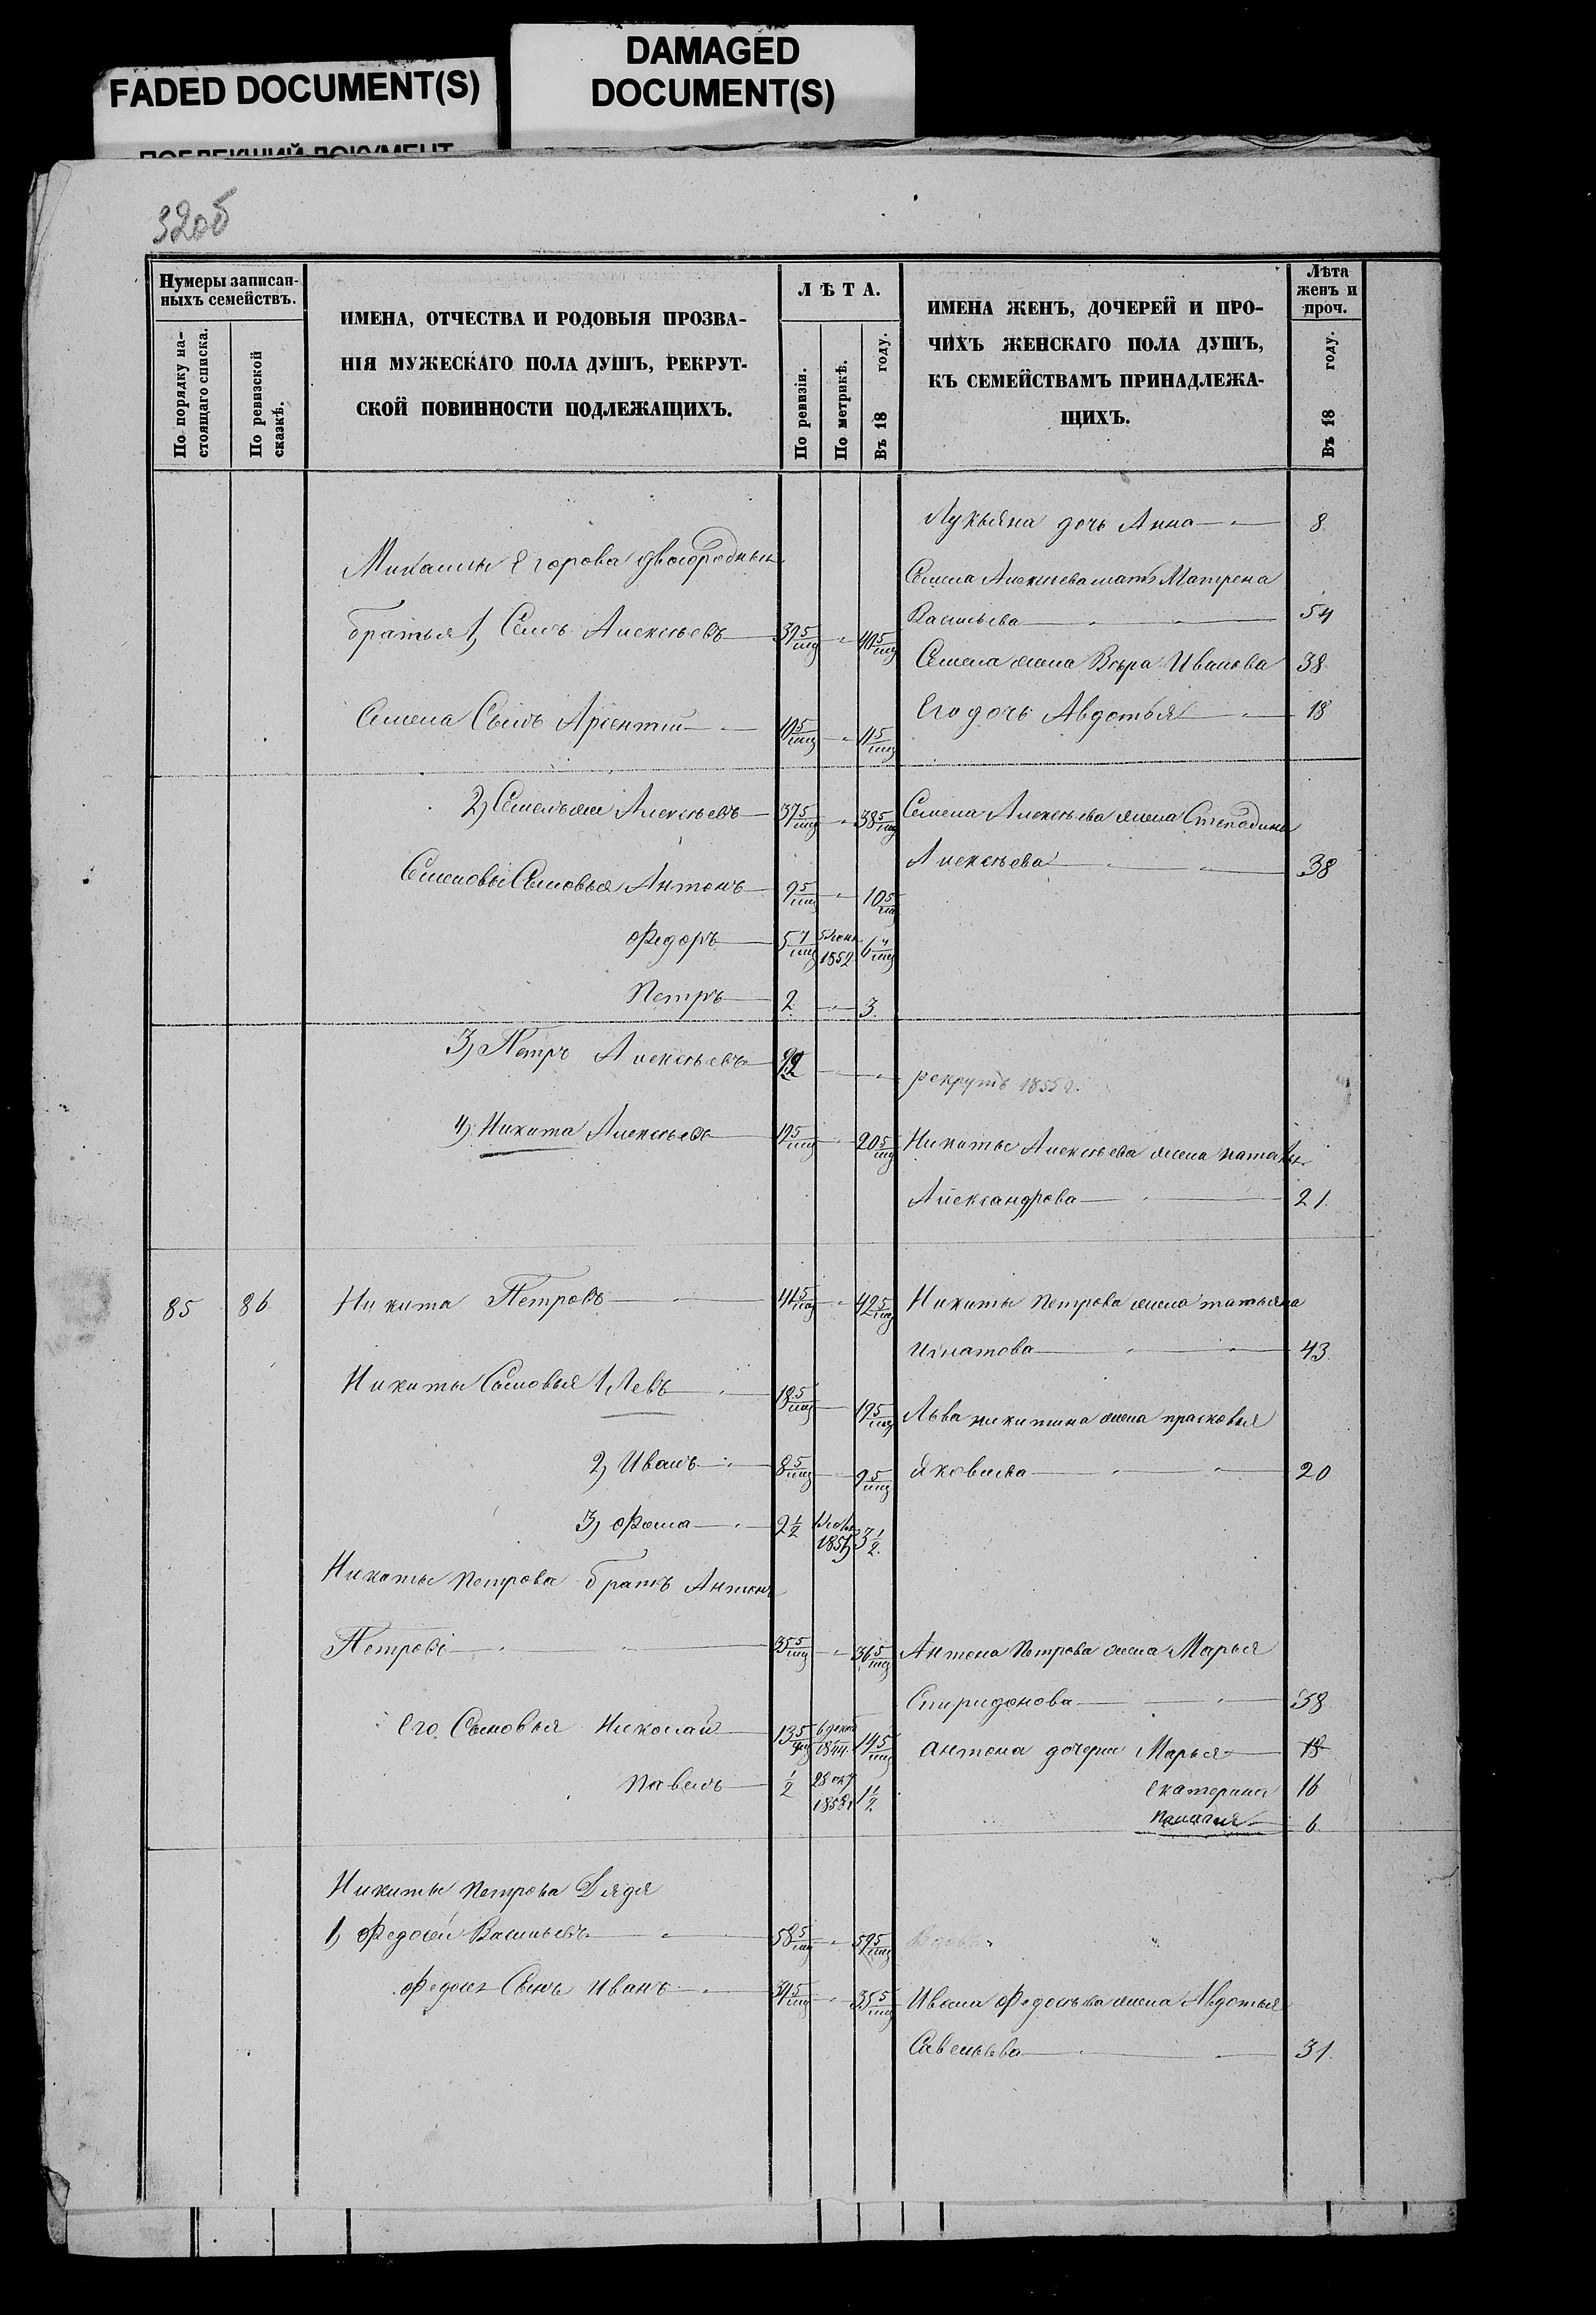 FADED DOCUMENT(S)
DAMAGED
DOCUMENT(S)
ПОБЛЕКШИЙ ДОКУМЕНТ
32об
Нумеры записан-
ныхъ семействъ.
По порядку на-
стоящаго списка.
По ревизской
сказкѣ.
ИМЕНА, ОТЧЕСТВА И РОДОВЫЯ ПРОЗВА-
НІЯ МУЖЕСКАГО ПОЛА ДУШЪ, РЕКРУТ-
СКОЙ ПОВИННОСТИ ПОДЛЕЖАЩИХЪ.
ЛѢТА.
По ревизіи.
По метрикѣ.
Въ 18 году.
ИМЕНА ЖЕНЪ, ДОЧЕРЕЙ И ПРО-
ЧИХЪ ЖЕНСКАГО ПОЛА ДУШЪ,
КЪ СЕМЕЙСТВАМЪ ПРИНАДЛЕЖА-
ЩИХЪ.
Лѣта
женъ и
проч.
Въ 18 году.
Лукьяна дочь Анна 8
Егорова двоюродныя
Семена Алексѣева мать Матрена
братья 1, Алексѣевъ
Васильева 54
Семена жена Вѣра Иванова 38
Семена Сынъ
Его дочь Авдотья 18
2) Алексѣевъ 37 5/мц 38 5/мц Семена Алексѣева жена Степанида
Алексѣева 38
Семеновы Сыновья Антонъ 9 5/мц 10 5/мц
Федоръ 1852
Петръ 2 3
3) Петръ Алексѣевъ 22 рекрутъ 1855 г.
4) Никита Алексѣевъ 19 5/мц 20 5/мц Никиты Алексѣева жена
Александрова 21
85 86 Никита Петровъ 41 5/мц 42 5/мц Никиты Петрова жена татьяна
Игнатова 43
Никиты Сыновья 1 Левъ 18 5/мц 19 5/мц Льва никитина жена прасковья
2, Иванъ 8 5/мц 9 5/мц Яковлева 20
3, Фома 2 1/2 3 1/2
Никиты Петрова братъ Антонъ
Петровъ 35 5/мц 36 5/мц Антона Петрова жена Марья
Спиридонова 38
Его Сыновья Николай 13 5/мц 1844 14 5/мц Антона дочери Марья 18
Павелъ 1/2 28 окт 1 1/2 Екатерина 16
Пелагея 6
Никиты Петрова Дядя
1, Федосей Васильевъ 58 5/мц 59 5/мц Вдовъ
Федосея Сынъ Иванъ 34 5/мц 35 5/мц Ивана Федосѣева жена Авдотья
Савельева 31